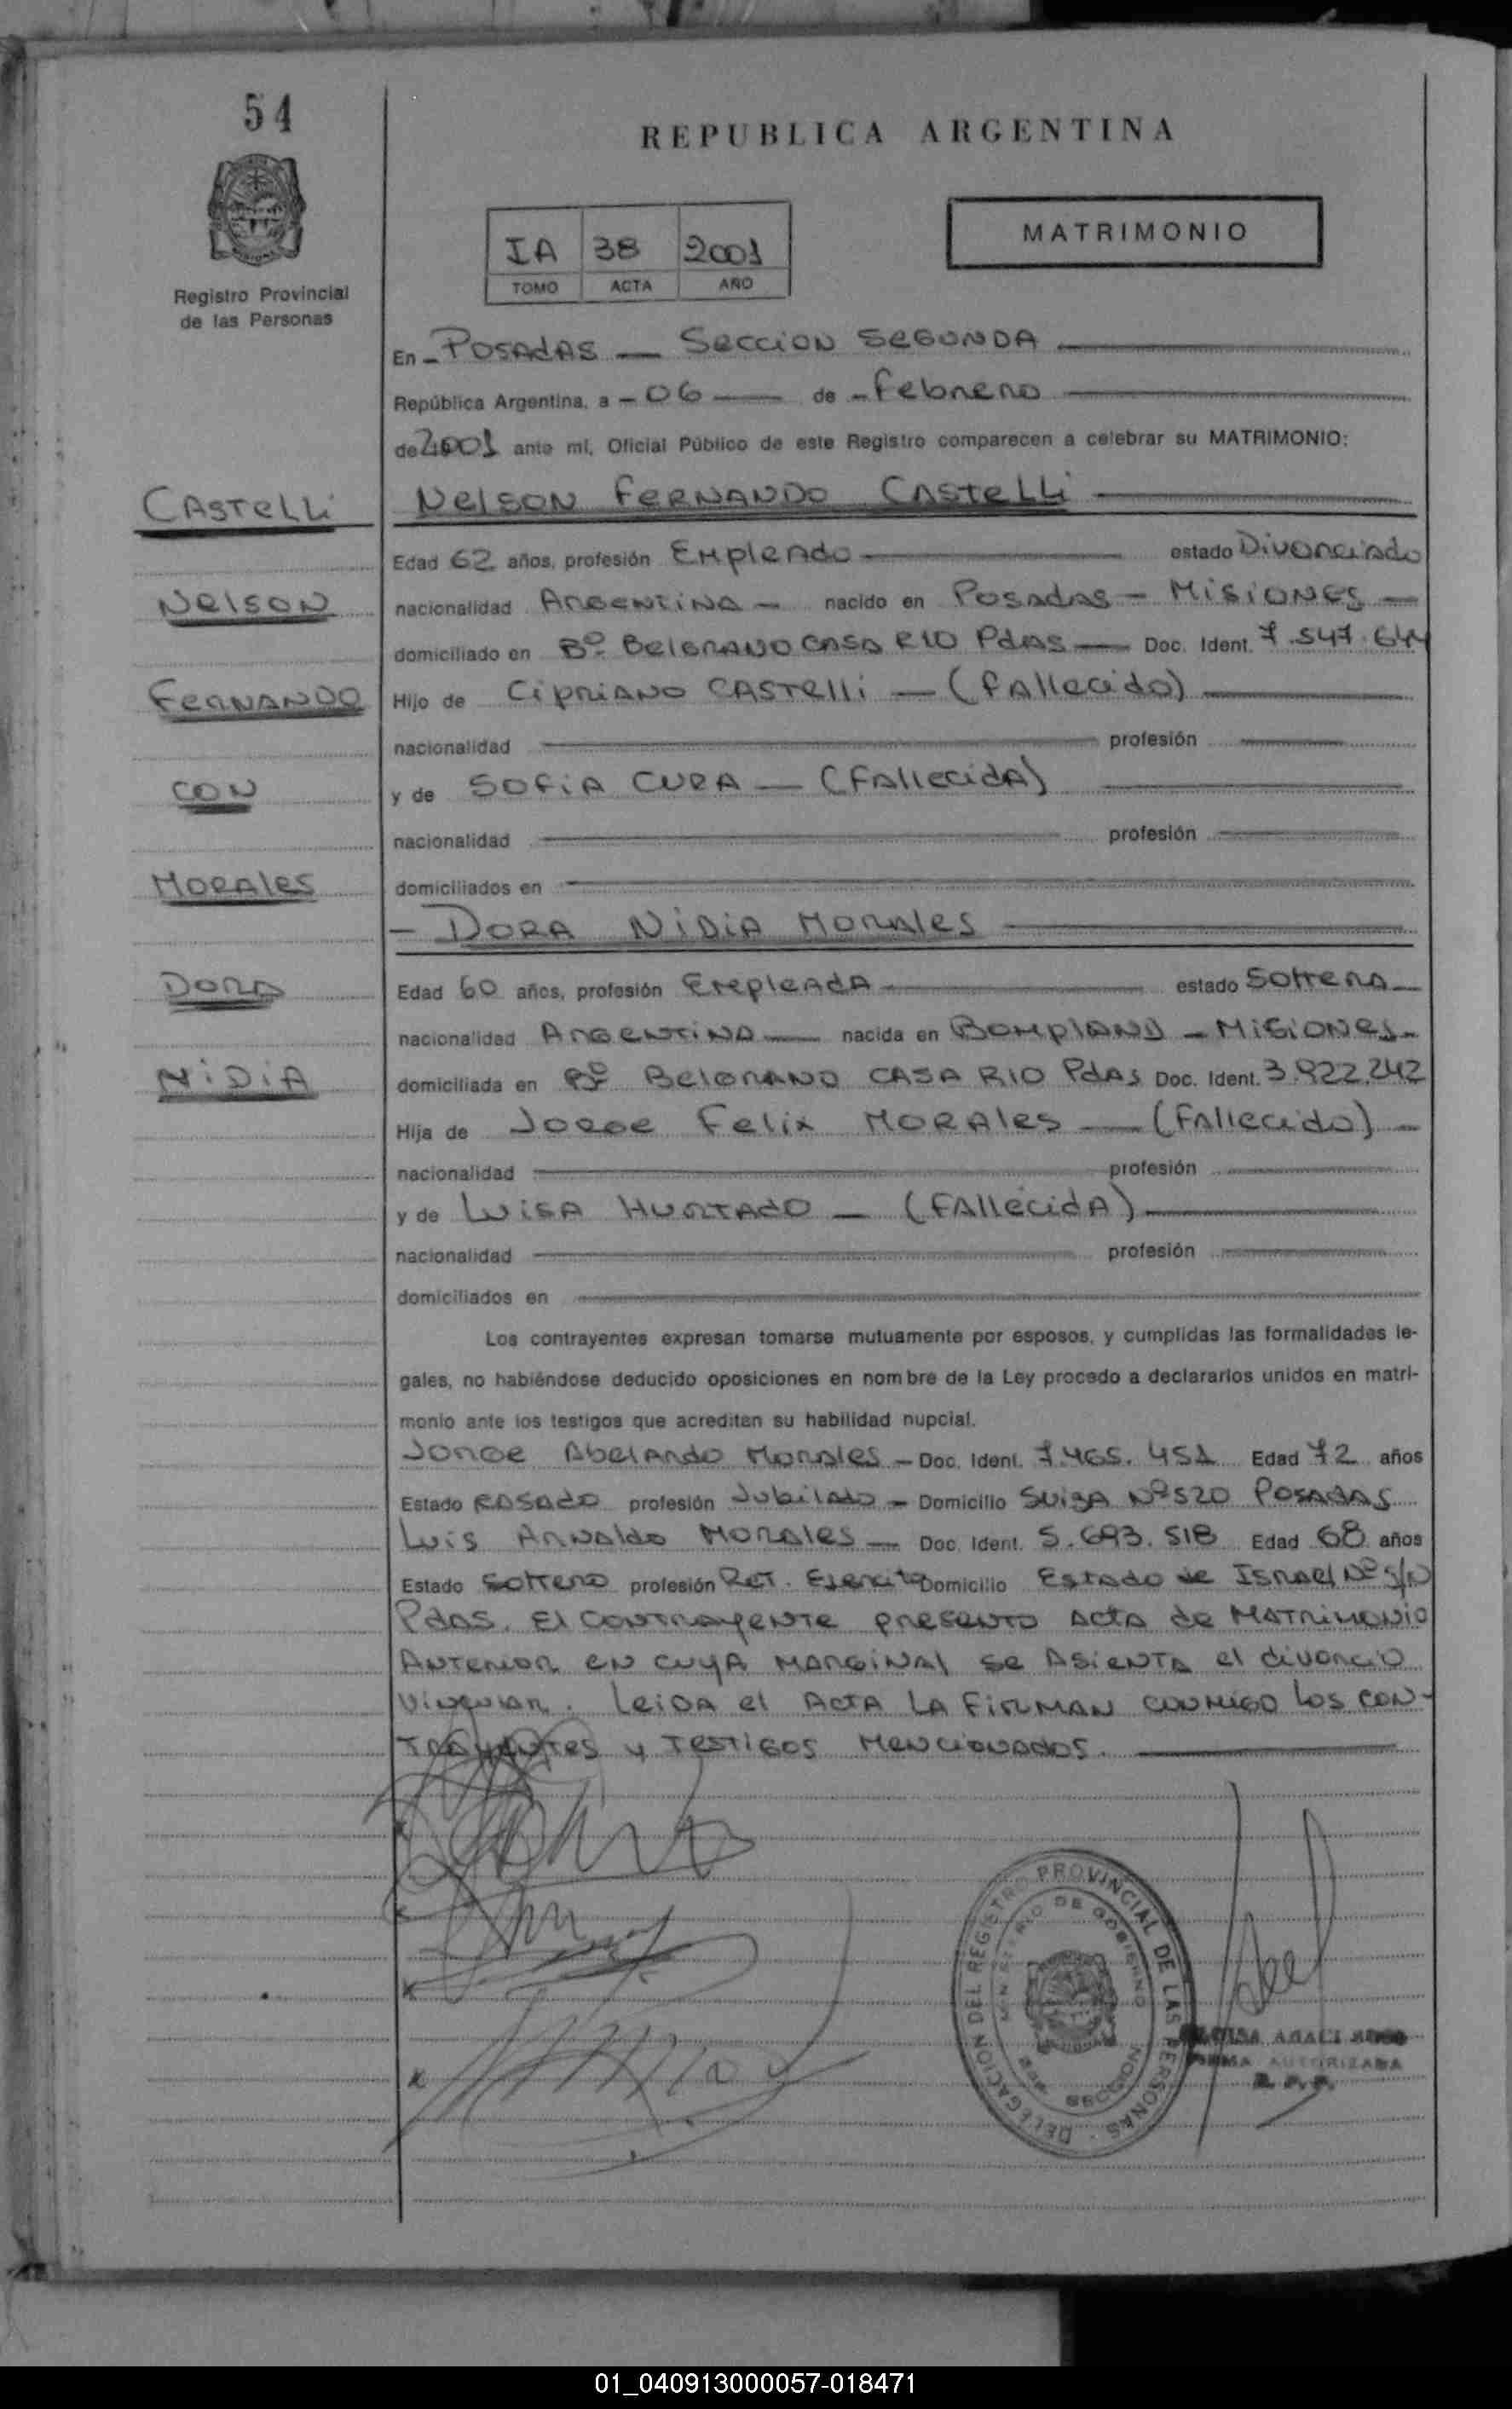 54
REPUBLICA ARGENTINA
IA 38 2001
TOMO ACTA AÑO
MATRIMONIO
Registro Provincial
de las Personas
En - Posadas — Seccion Segunda
República Argentina, a - 06 — de - Febrero
de 2001 ante mi, Oficial Público de este Registro comparecen a celebrar su MATRIMONIO:
Castelli
Nelson Fernando Castelli
Edad 62 años, profesión Empleado — estado Divorciado
Nelson
nacionalidad Argentina — nacido en Posadas - Misiones —
domiciliado en Bº Belgrano casa R10 Pdas — Doc. Ident. 7.547.644
Fernando
Hijo de Cipriano Castelli — (fallecido)
nacionalidad — profesión —
con
y de Sofia Cura — (Fallecida)
nacionalidad — profesión —
Morales
domiciliados en —
- Dora Nidia Morales
Dora
Edad 60 años, profesión Empleada — estado Soltera —
nacionalidad Argentina — nacida en Bompland - Misiones -
Nidia
domiciliada en Bº Belgrano casa R10 Pdas Doc. Ident. 3.922.242
Hija de Jorge Felix Morales — (Fallecido) —
nacionalidad — profesión —
y de Luisa Hurtado — (Fallecida) —
nacionalidad — profesión —
domiciliados en —
Los contrayentes expresan tomarse mutuamente por esposos, y cumplidas las formalidades le-
gales, no habiéndose deducido oposiciones en nombre de la Ley procedo a declararlos unidos en matri-
monio ante los testigos que acreditan su habilidad nupcial.
Jorge Abelardo Morales - Doc. Ident. 7.465.451 Edad 72 años
Estado casado profesión Jubilado - Domicilio Suiza Nº 520 Posadas
Luis Arnaldo Morales — Doc. Ident. 5.693.518 Edad 68 años
Estado Soltero profesión Ret. Ejercito Domicilio Estado de Israel Nº s/n
Pdas. El contrayente presento acta de matrimonio
Anterior en cuya marginal se asienta el divorcio
vincular. Leida el acta la firman conmigo los con-
trayentes y testigos mencionados. —
DELEGACION DEL REGISTRO PROVINCIAL DE LAS PERSONAS
MINISTERIO DE GOBIERNO
SECCION
FIRMA AUTORIZADA
R. P. P.
01_040913000057-018471